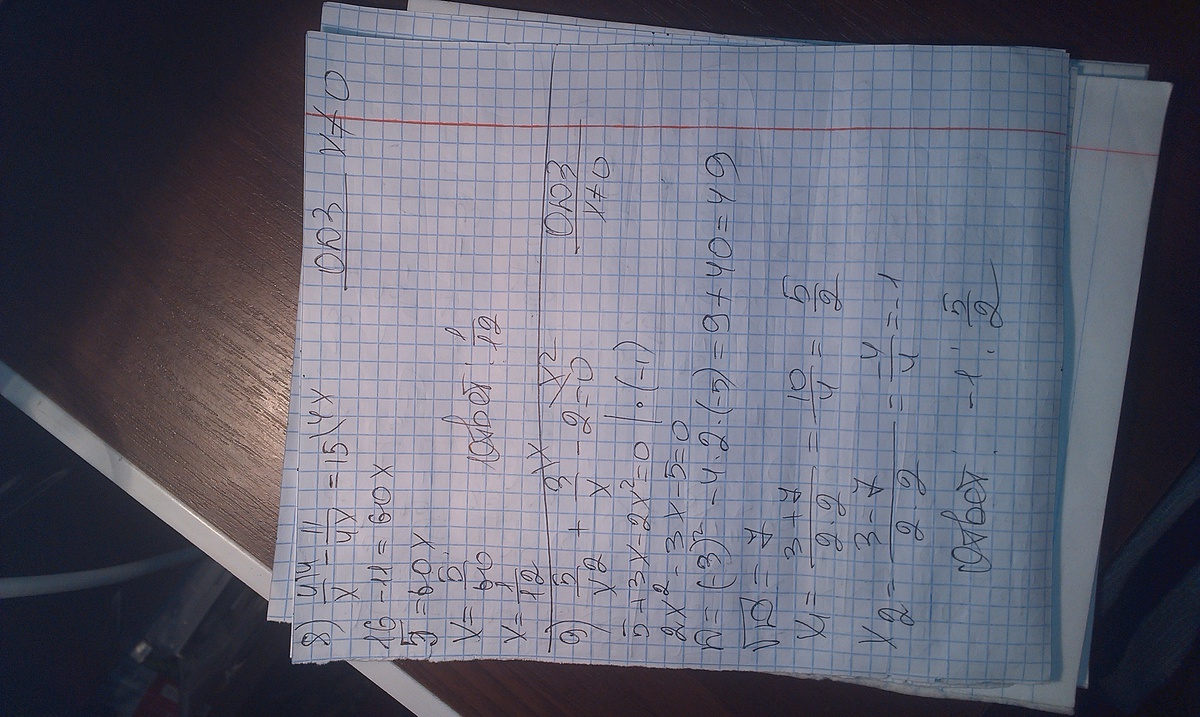 8) 4\4/x - 11/4x = 15\4x ОДЗ x≠0
16 - 11 = 60x
5 = 60x
x = 5/60
x = 1/12 Ответ: 1/12
9) 5/x2 + 3\x/x - 2\x2 = 0 ОДЗ x≠0
5 + 3x - 2x2 = 0 | · (-1)
2x2 - 3x - 5 = 0
D = (-3)2 - 4 · 2 · (-5) = 9 + 40 = 49
√D = 7
x1 = 3+7/2·2 = 10/4 = 5/2
x2 = 3-7/2·2 = -4/4 = -1
Ответ: -1; 5/2